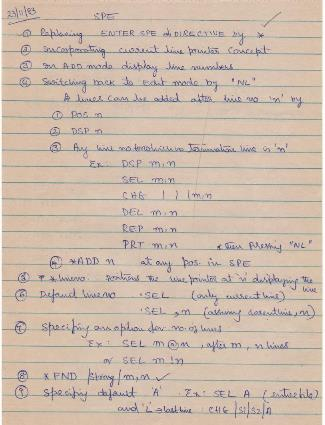 23/11/83
SPE
① Replacing ENTER SPE DIRECTIVE by *
② Incorporating current line pointer concept
③ In ADD mode display line numbers
④ Switching back to edit mode by "NL"
& lines can be added after line no 'n' by
① POS n
② DSP n
③ Any line no involving termination line is 'n'
Ex: DSP m,n
SEL m,n
CHG / / / m,n
DEL m,n
REP m,n
PRT m,n * then pressing "NL"
④ *ADD n at any pos. in SPE
⑤ * lineno. positions the line pointer at 'n' displaying the line
⑥ Default line no :SEL (only current line)
:SEL ,n (assumes current line, n)
⑦ Specifying an option for no. of lines
Ex: SEL m@n, after m, n lines
or SEL m!n
⑧ *FND /string/m,n ✓
⑨ Specifying default 'A' Ex: SEL A (entire file)
and 'L' → last line : CHG /S1/S2/A